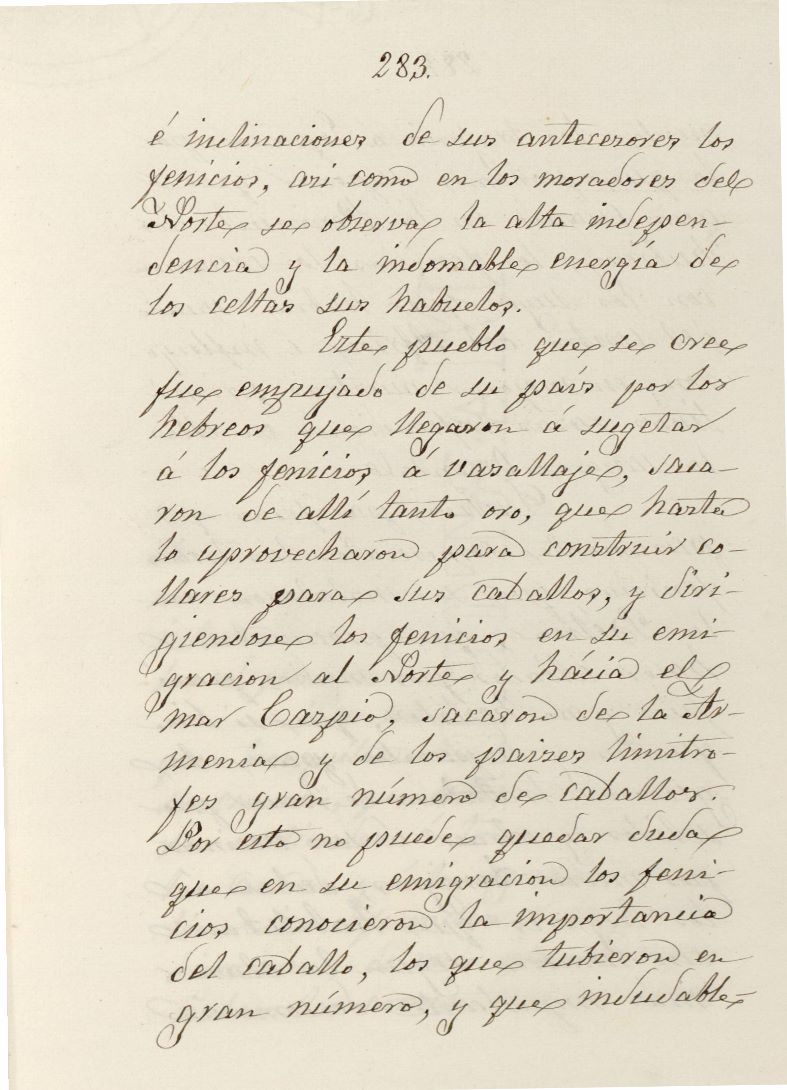 283.
é inclinaciones de sus antecesores los
fenicios, asi como en los moradores del
Norte se observa la alta indepen-
dencia y la indomable energía de
los celtas sus habuelos.
Este pueblo que se cree
fue empujado de su país por los
hebreos que llegaron á sugetar
á los fenicios á vasallaje, saca-
ron de allí tanto oro, que hasta
lo aprovecharon para construir co-
llares para sus caballos, y diri-
giendose los fenicios en su emi-
gracion al Norte y hácia el
mar Caspio, sacaron de la Ar-
menia y de los paises limitro-
fes gran número de caballos.
Por esto no puede quedar duda
que en su emigracion los feni-
cios conocieron la importancia
del caballo, los que tubieron en
gran número, y que indudable-